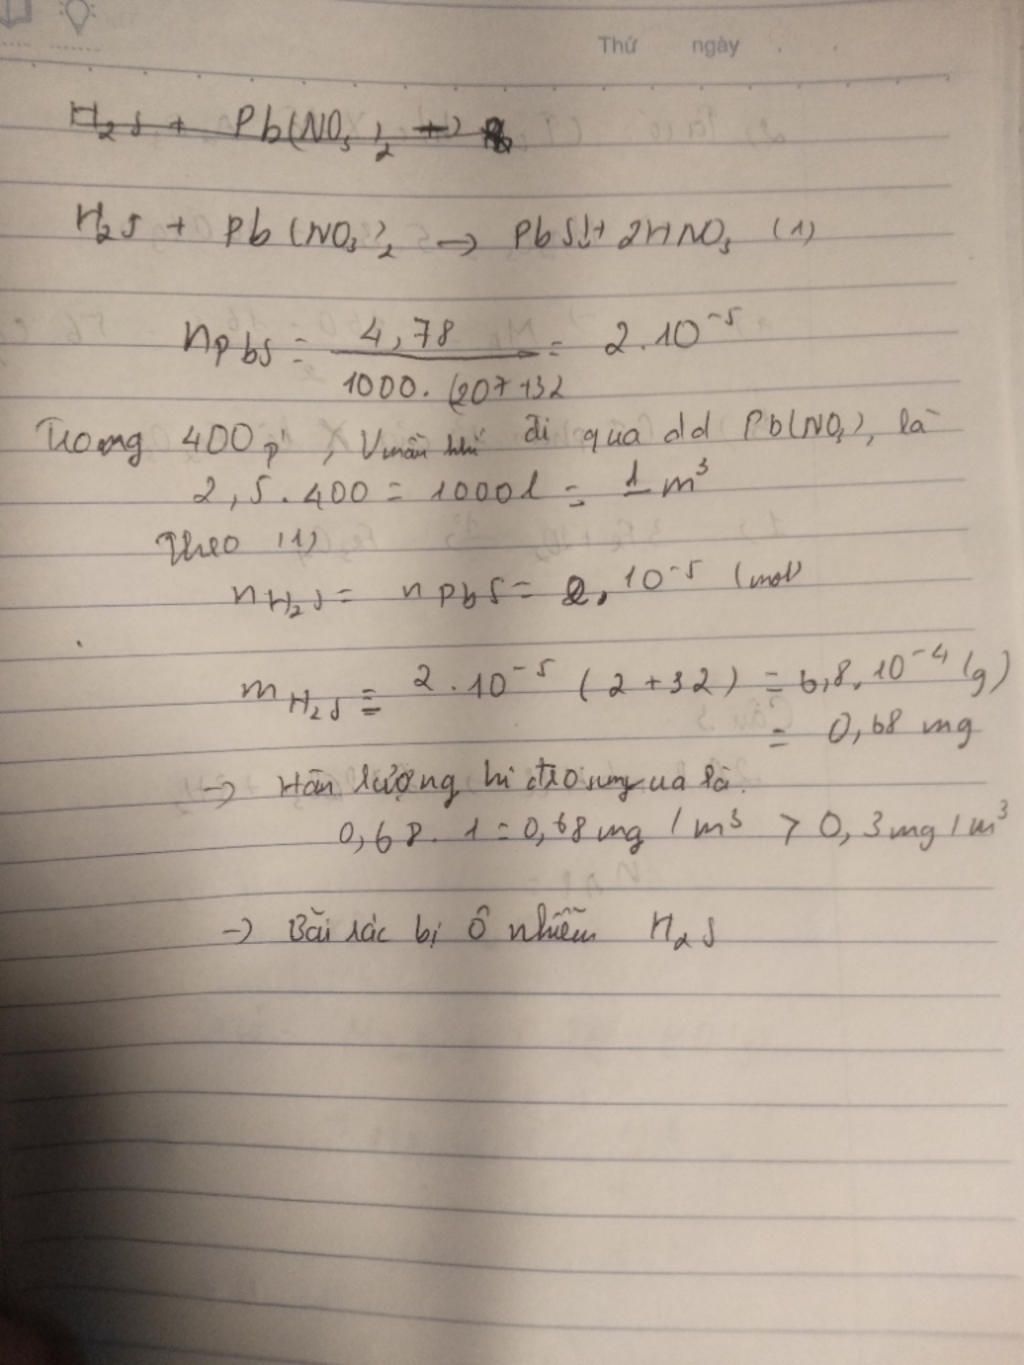 Thứ ngày
H₂S + Pb(NO₃)₂ →
H₂S + Pb(NO₃)₂ → PbS↓ + 2HNO₃ (1)
nPbS = 4,78 / 1000.(207+32 = 2.10⁻⁵
Trong 400 p', Vmẫu khí đi qua dd Pb(NO₃)₂ là
2,5.400 = 1000l = 1 m³
Theo (1)
nH₂S = nPbS = 2.10⁻⁵ (mol)
mH₂S = 2.10⁻⁵ (2+32) = 6,8.10⁻⁴ (g)
= 0,68 mg
→ Hàn lượng hi đro sunfua là.
0,68.1 = 0,68 mg/m³ > 0,3 mg/m³
→ Bãi rác bị ô nhiễm H₂S